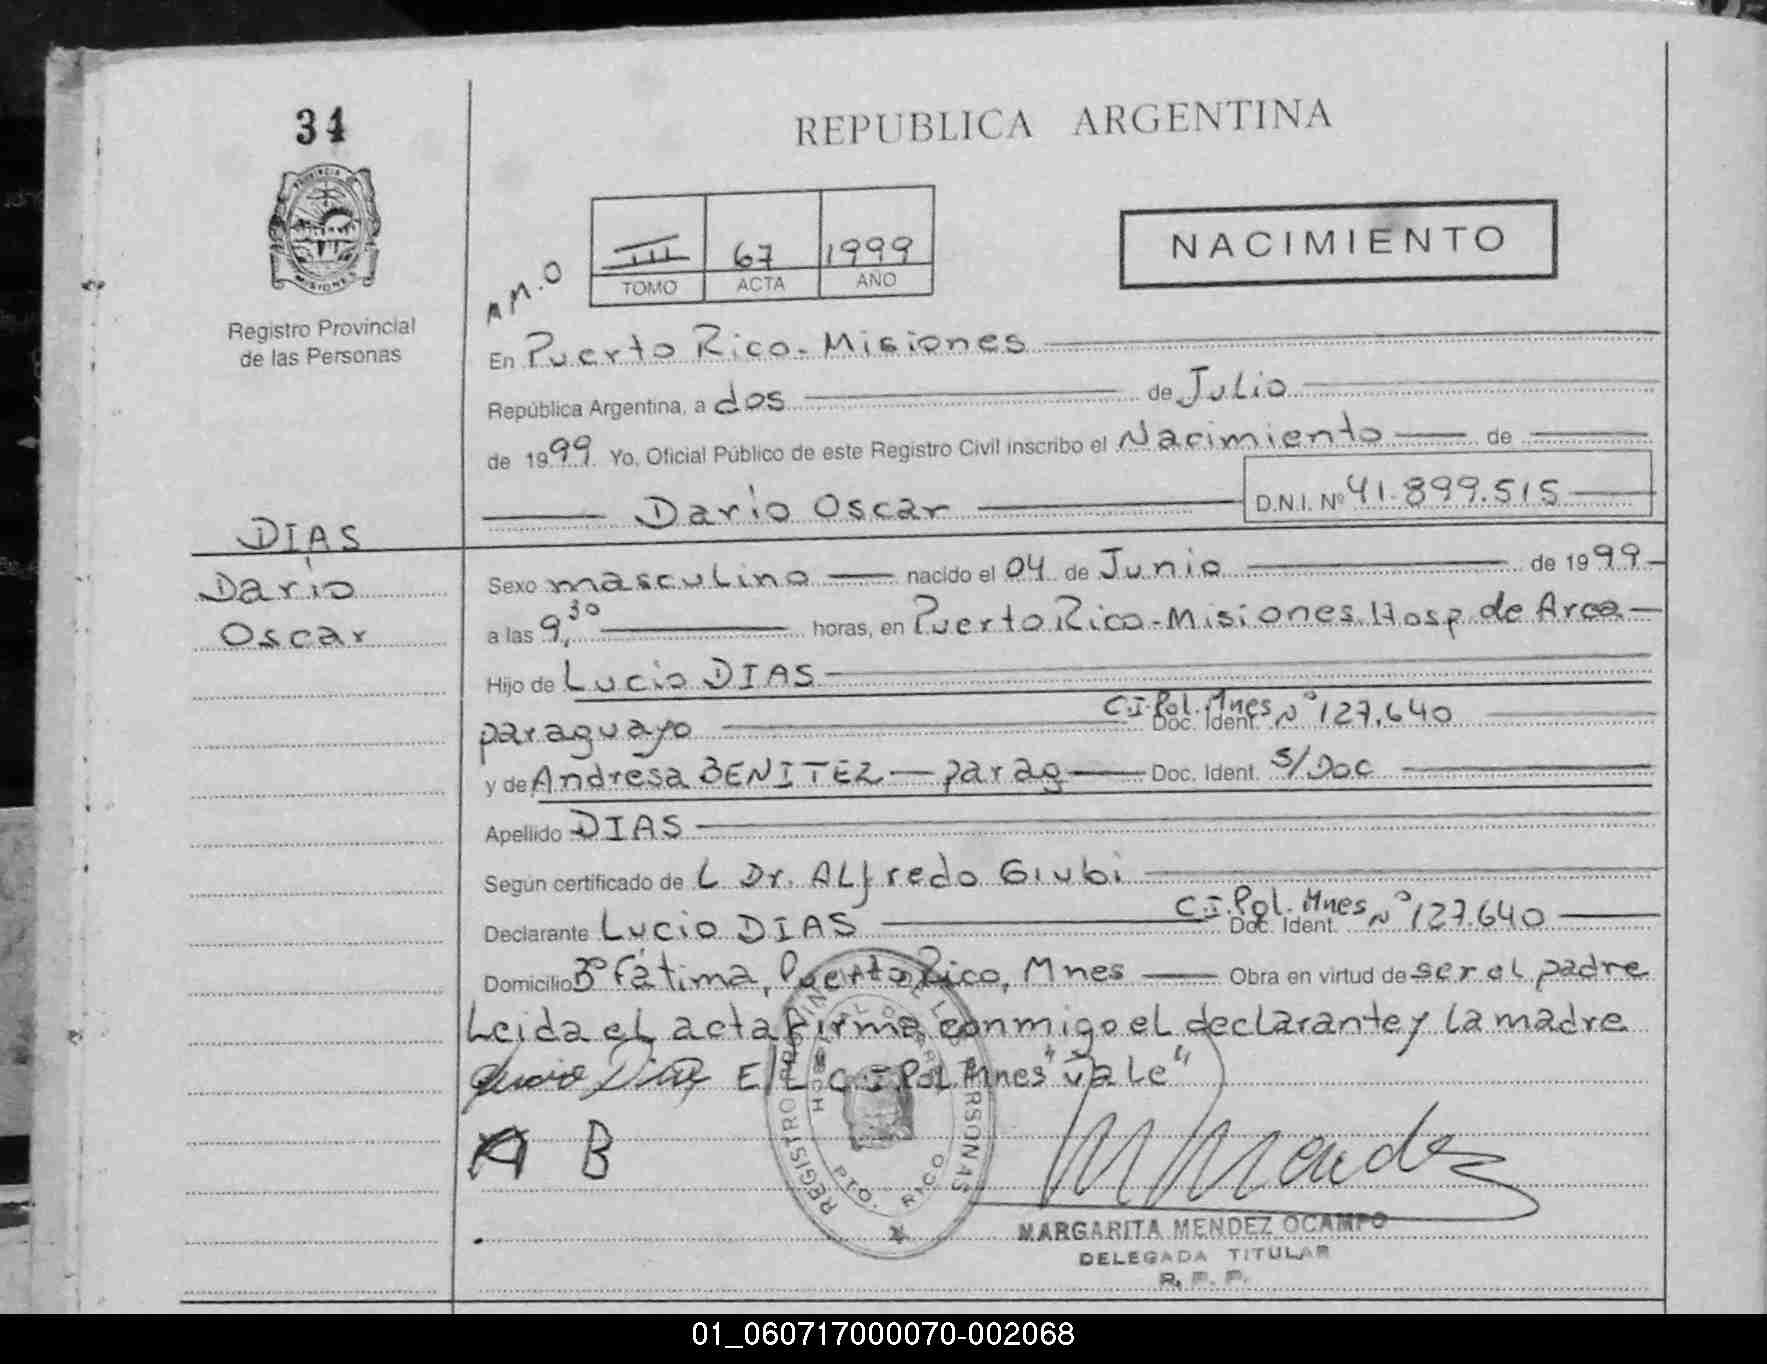 34
REPUBLICA ARGENTINA
PROVINCIA DE MISIONES
Registro Provincial
de las Personas
A M.O
III 67 1999
TOMO ACTA AÑO
NACIMIENTO
En Puerto Rico - Misiones
República Argentina, a dos de Julio
de 1999 Yo, Oficial Público de este Registro Civil inscribo el Nacimiento de
Dario Oscar D.N.I. Nº 41.899.515
DIAS
Dario
Oscar
Sexo masculino nacido el 04 de Junio de 1999
a las 9,30 horas, en Puerto Rico - Misiones. Hosp. de Area
Hijo de Lucio DIAS
paraguayo Doc. Ident. C.I. Pol. Mnes Nº 127.640
y de Andresa BENITEZ - parag Doc. Ident. S/Doc
Apellido DIAS
Según certificado de L Dr. ALfredo Giubi
Declarante Lucio DIAS Doc. Ident. C.I. Pol. Mnes Nº 127.640
Domicilio Bº Fátima, Puerto Rico, Mnes Obra en virtud de ser el padre
Leida el acta firma conmigo el declarante y la madre
Lucio Dias E/L C I Pol. Mnes "vale"
A B
REGISTRO PROVINCIAL DE LAS PERSONAS
PTO. RICO
M Mendez
MARGARITA MENDEZ OCAMPO
DELEGADA TITULAR
R. P. P.
01_060717000070-002068